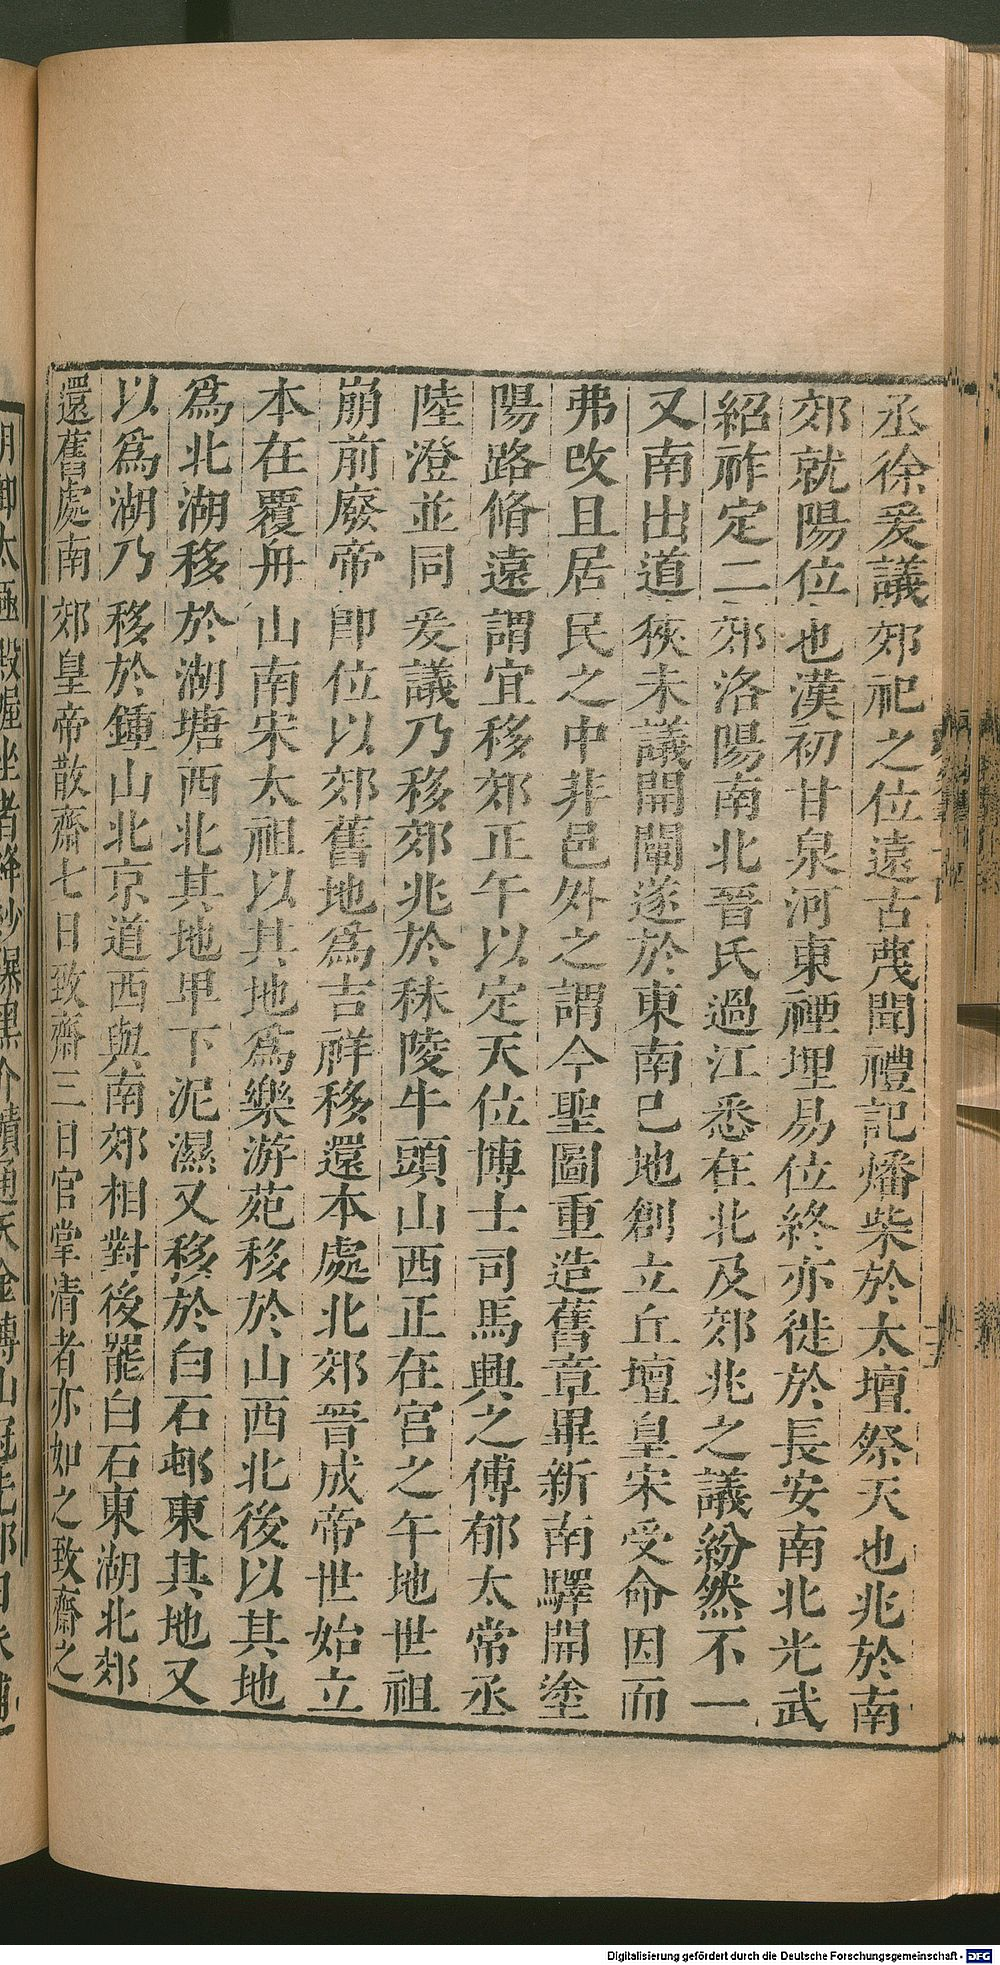 丞徐爰議郊祀之位遠古蔑聞禮記燔柴於太壇祭天也兆於南
郊就陽位也漢初甘泉河東禋埋易位終亦徙於長安南北光武
紹祚定二郊洛陽南北晉氏過江悉在北及郊兆之議紛然不一
又南出道狹未議開闡遂於東南已地創立丘壇皇宋受命因而
弗改且居民之中非邑外之謂今聖圖重造舊章畢新南驛開塗
陽路脩遠謂宜移郊正午以定天位博士司馬興之傅郁太常丞
陸澄並同爰議乃移郊兆於秣陵牛頭山西正在宮之午地世祖
崩前廢帝即位以郊舊地為吉祥移還本處北郊晉成帝世始立
本在覆舟山南宋太祖以其地為樂游苑移於山西北後以其地
為北湖移於湖塘西北其地卑下泥濕又移於白石邨東其地又
以為湖乃移於鍾山北京道西與南郊相對後罷白石東湖北郊
還舊處南郊皇帝散齋七日致齋三日官掌清者亦如之致齋之
Digitalisierung gefördert durch die Deutsche Forschungsgemeinschaft - DFG